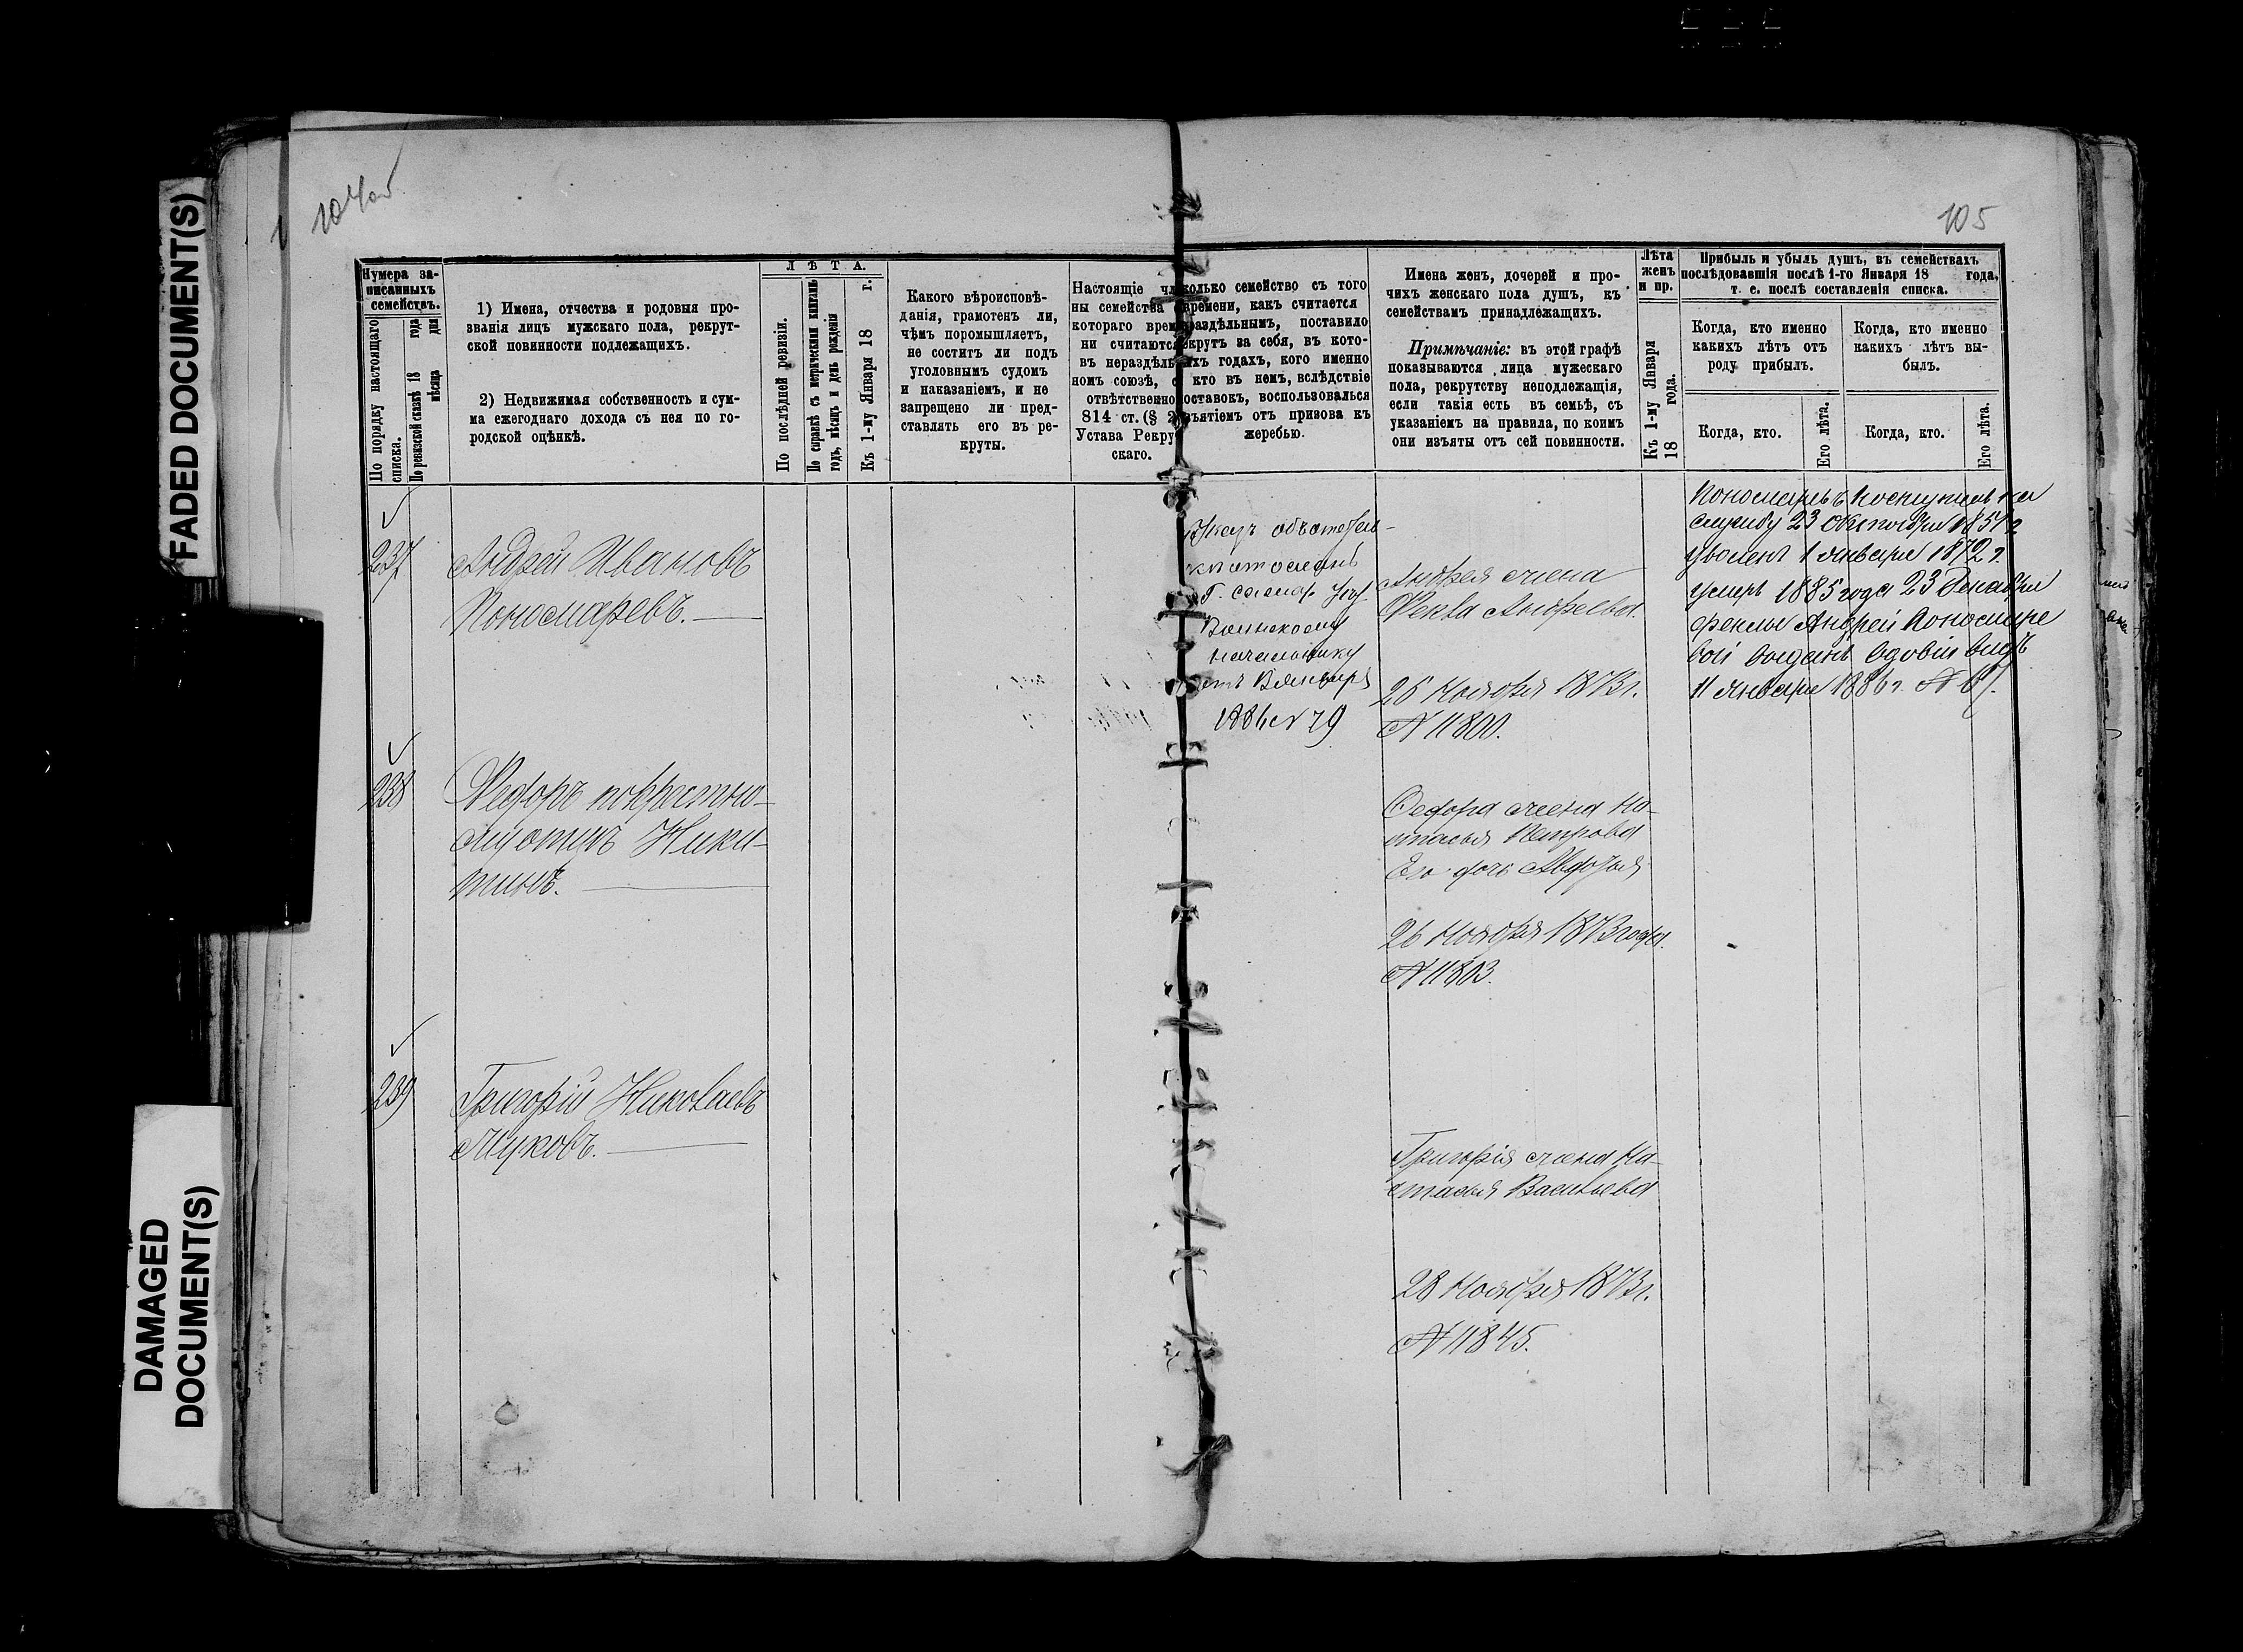 FADED DOCUMENT(S)
DAMAGED
DOCUMENT(S)
104об
105
Нумера за-
писанныхъ
семействъ.
По порядку настоящаго
списка.
По ревизской сказкѣ 18 года
мѣсяца дня
1) Имена, отчества и родовыя про-
званія лицъ мужскаго пола, рекрут-
ской повинности подлежащихъ.
2) Недвижимая собственность и сум-
ма ежегоднаго дохода съ нея по го-
родской оцѣнкѣ.
Л Ѣ Т А.
По послѣдней ревизіи.
По справкѣ съ метрическими книгами
годъ, мѣсяцъ и день рожденія
Къ 1-му Января 18 г.
Какого вѣроисповѣ-
данія, грамотенъ ли,
чѣмъ поромышляетъ,
не соститъ ли подъ
уголовнымъ судомъ
и наказаніемъ, и не
запрещено ли пред-
ставлять его въ ре-
круты.
Настоящіе чл
ны семейства
котораго врем
ни считаются
въ нераздѣль
номъ союзѣ, с
отвѣтственно
814 ст. (§ 2
Устава Рекру
скаго.
колько семейство съ того
времени, какъ считается
раздѣльнымъ, поставило
екрутъ за себя, въ кото-
ыхъ годахъ, кого именно
кто въ немъ, вслѣдствіе
оставокъ, воспользовался
ъятіемъ отъ призова къ
жеребью.
Имена женъ, дочерей и про-
чихъ женскаго пола душъ, къ
семействамъ принадлежащихъ.
Примѣчаніе: въ этой графѣ
показываются лица мужескаго
пола, рекрутству неподлежащія,
если такія есть въ семьѣ, съ
указаніемъ на правила, по коимъ
они изъяты отъ сей повинности.
Лѣта
женъ
и пр.
Къ 1-му Января
18 года.
Прибыль и убыль душъ, въ семействахъ
послѣдовавшія послѣ 1-го Января 18 года,
т. е. послѣ составленія списка.
Когда, кто именно
какихъ лѣтъ отъ
роду прибылъ.
Когда, кто именно
какихъ лѣтъ вы-
былъ.
Когда, кто.
Его лѣта.
Когда, кто.
Его лѣта.
237
Андрей Ивановъ
Пономаревъ.
Указъ
отосланъ
Воинскому
начальнику
1886 N 79
Андрея жена
Фекла Андреева.
26 Ноября 1873 г.
N 11800.
Пономаревъ поступилъ на
службу 23 Октября
уволенъ 1 января 1872 г.
умеръ 1885 года 23 Декабря
Феклы Андрей Пономаре
вой выданъ вдовій видъ
11 Января 1886 г. N
238
Федоръ по крестно-
му отцу Ники-
тинъ.
Федора жена На-
тасья Петрова
Его дочь Авдотья
26 Ноября 1873 года.
N 11803.
239
Григорій Николаевъ
Жуковъ.
Григорія жена На-
стасья Васильева
28 Ноября 1873 г.
N 11845.